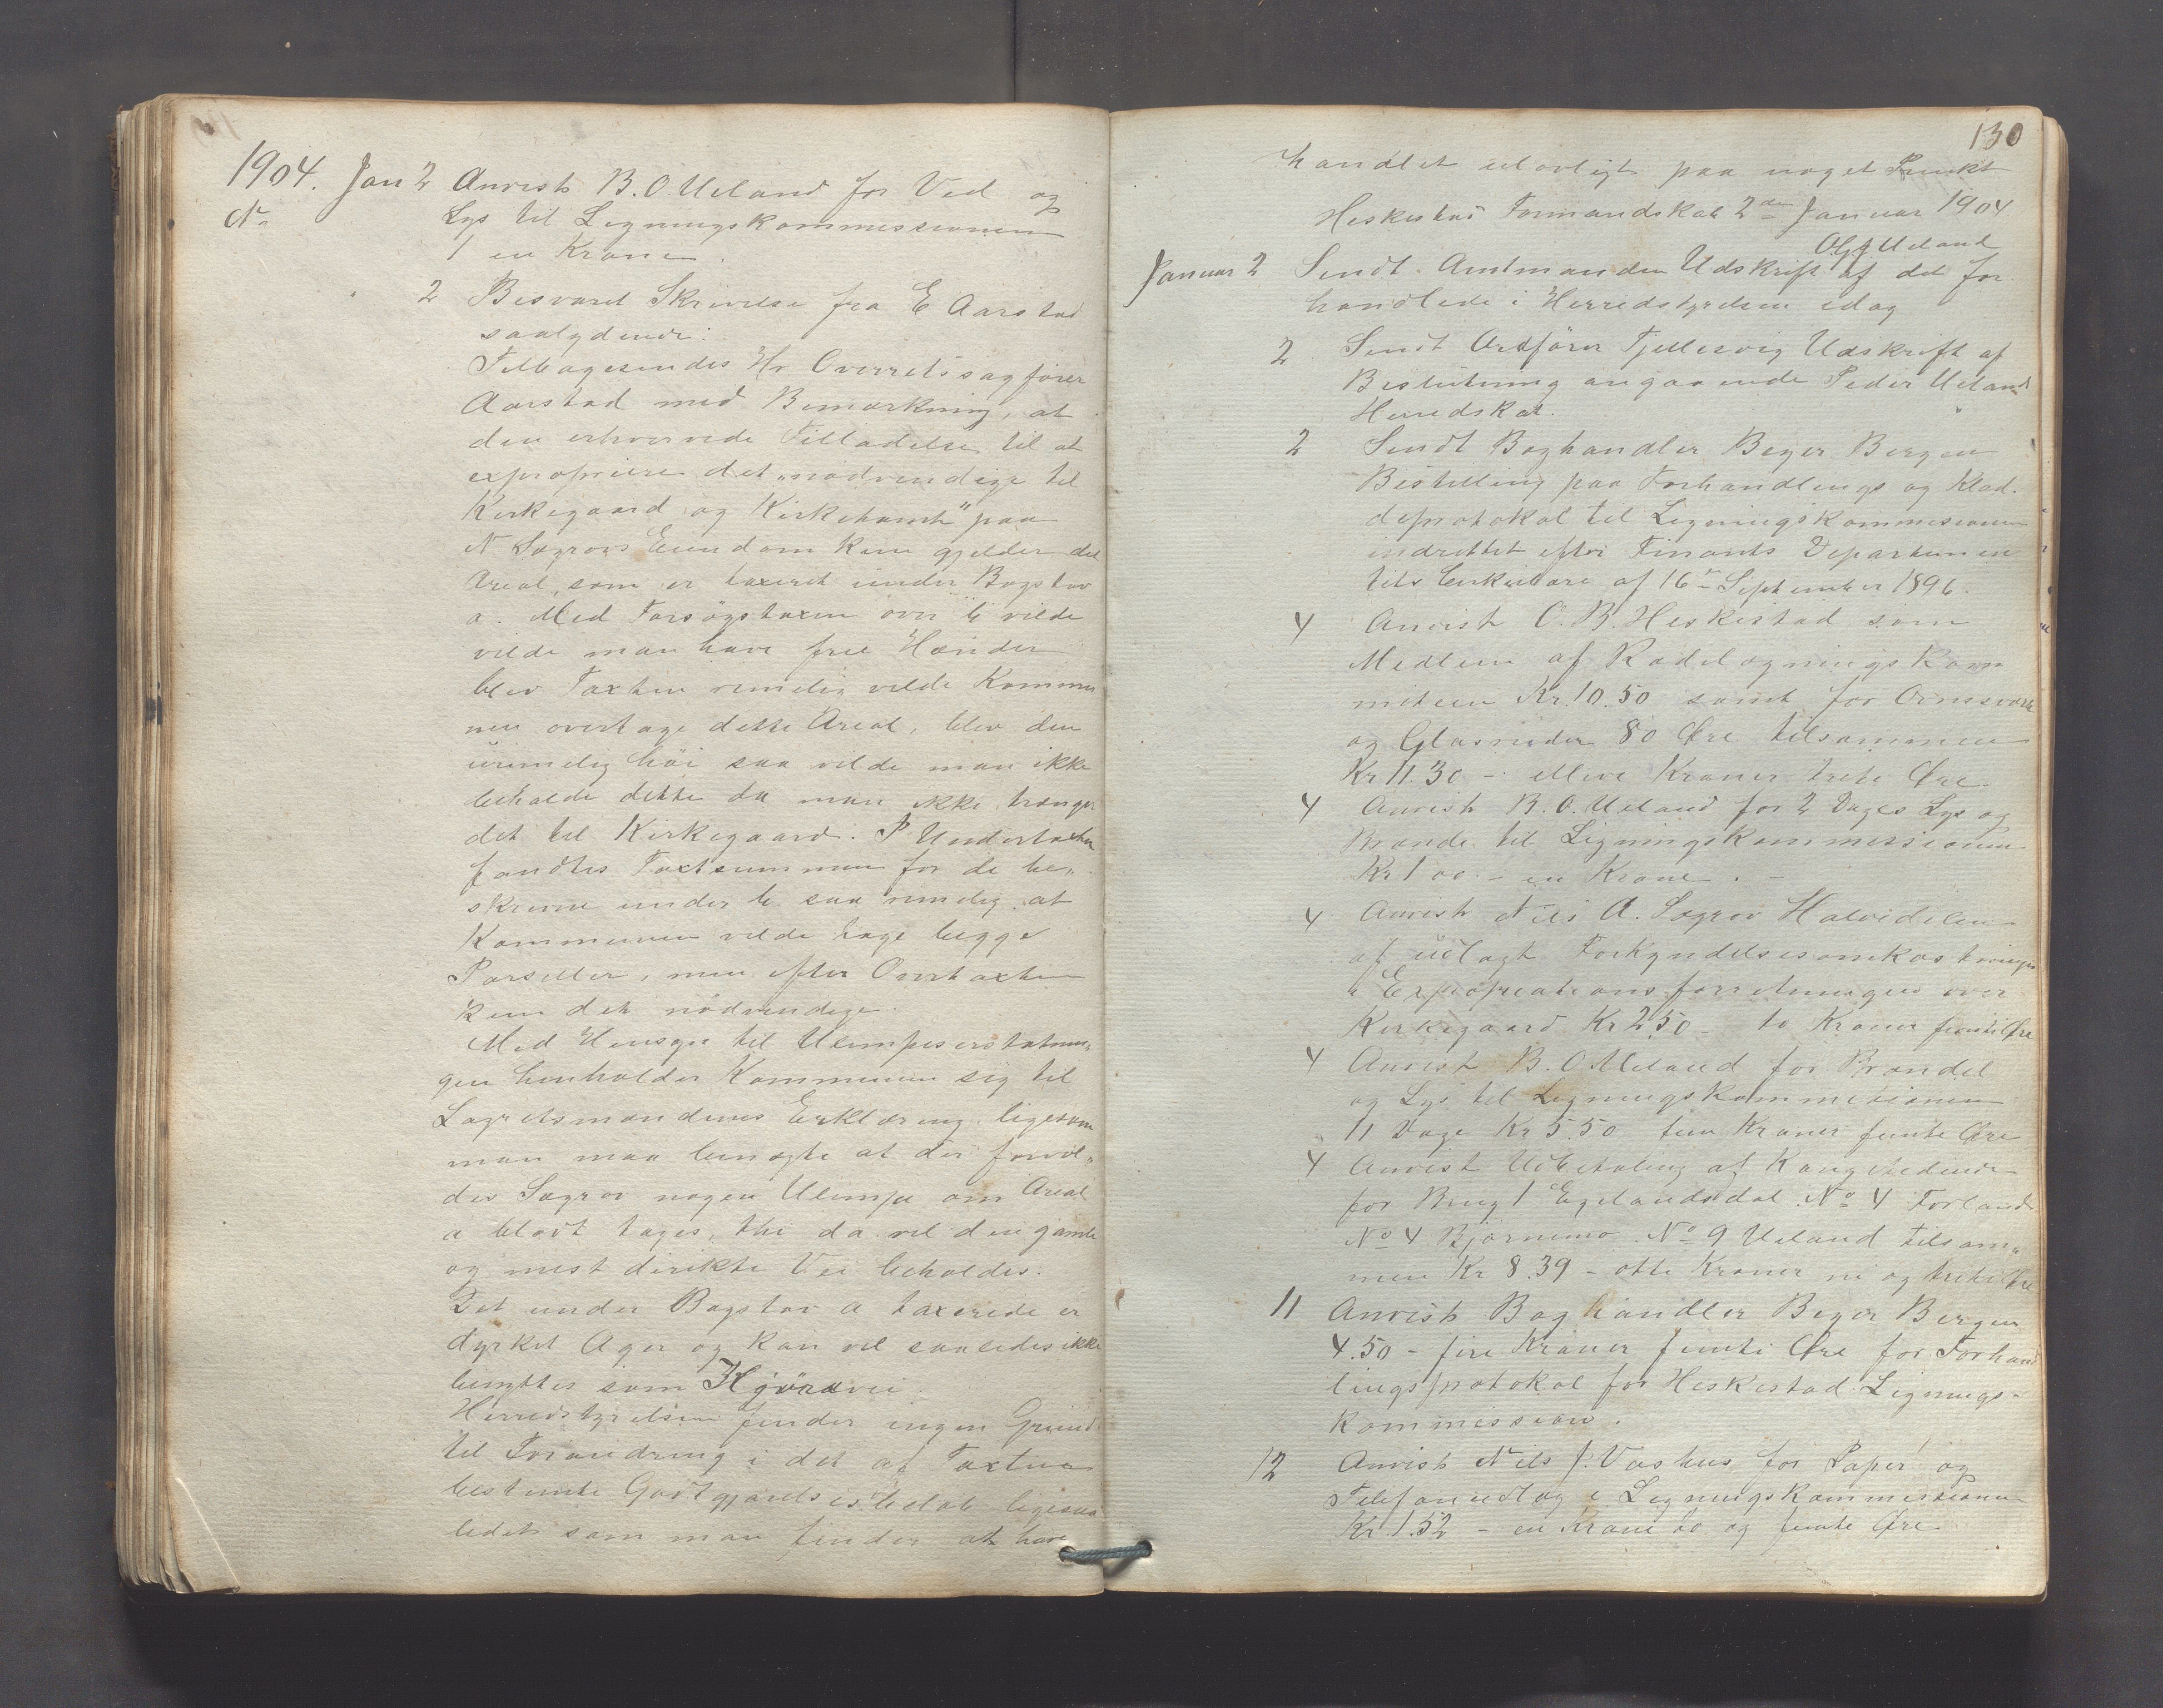 1904. Jan 2 Anvist B. O. Ueland for Ved og
Lys til Ligningskommissionen
1 en Krone.
2 Besvaret Skrivelse fra E Aarstad
saalydende:
Tilbagesendes Hr Overretssagfører
Aarstad med Bemærkning, at
den erhvervede Tilladelse til at
expropriere det „nødvendige til
Kirkegaard og Kirketomt" paa
N Sægrovs Eiendom kun gjelder det
Areal, som er taxeret under Bogstav
a. Med Forsøgstaxen over b vilde
vilde man have frie Hænder
blev Taxten rimelig vilde Kommu
nen overtage dette Areal, blev den
urimelig høi saa vilde man ikke
beholde dette da man ikke trænger
det til Kirkegaard. P. Undertaxten
fandtes Taxtsummen for de be„
skrevne under b. saa rimelig, at
Kommunen vilde tage begge
Parseller, men efter Overtaxten
kun det nødvendige.
Med Hensyn til Ulempeserstatnin„
gen henholder Kommunen sig til
Lagretsmændenes Erklæring, ligesom
man maa benægte at der forvol„
des Sægrov nogen Ulempe om Areal
a blodt tages, thi da vil den gamle
og mest direkte Vei beholdes.
Det under Bogstav a taxerede er
dyrket Ager og kan vel saaledes ikke
benyttes som Kjørevei.
Herredstyrelsen finder ingen Grund
til Forandring i det af Taxten
bestemte Godtgjørelsesbeløb ligesaa
ledes som man finder at have
130
handlet ulovligt paa noget Punkt
Heskestad Formandskab 2den Januar 1904
O. G. Ueland
Januar 2 Sendt Amtmanden Udskrift af det for
handlede i Herredstyrelsen idag
2 Sendt Ordfører Tjellesvig Udskrift af
Beslutning angaaende Peder Ueland
Herredskat.
2 Sendt Boghandler Beyer Bergen
Bestilling paa Forhandlings og Klad„
deprotokol til Ligningskommissionen
indrettet efter Finants Departemen
tets Cirkulære af 16de September 1896.
4 Anvist O. B. Heskestad som
Medlem af Rodelægningskom
miteen Kr. 10.50 samt for Ovnsværk
og Glasruder 80 Øre tilsammen
Kr 11.30 - elleve Kroner treti Øre.
4 Anvist B. O. Ueland for 2 Dages Lys og
Brænde til Ligningskommissionen
Kr 1 00 - en Krone. -
4 Anvist Nils A. Sægrov Halvdelen
af udlagt Forkyndelsesomkostninger
i Expropriationsforretningen over
Kirkegaard Kr 2.50 - to Kroner femti Øre
4 Anvist B. O. Ueland for Brændsel
og Lys til Ligningskommissionen
11 Dage Kr 5.50 fem Kroner femti Øre
4 Anvist Udbetaling af
for Brug 1 Egelandsdal No 4 Forland
No 4 Bjørnemo No 9 Ueland tilsam„
men Kr 8.39 - otte Kroner ni og treti Øre
11 Anvist Boghandler Beyer Bergen
4.50 - fire Kroner femti Øre for Forhand
lingsprotokol for Heskestad Lignings-
kommission.
12 Anvist Nils J. Vashus for Papir og
Telefonudlæg i Ligningskommissionen
Kr. 1.52 - en Krone to og femti Øre